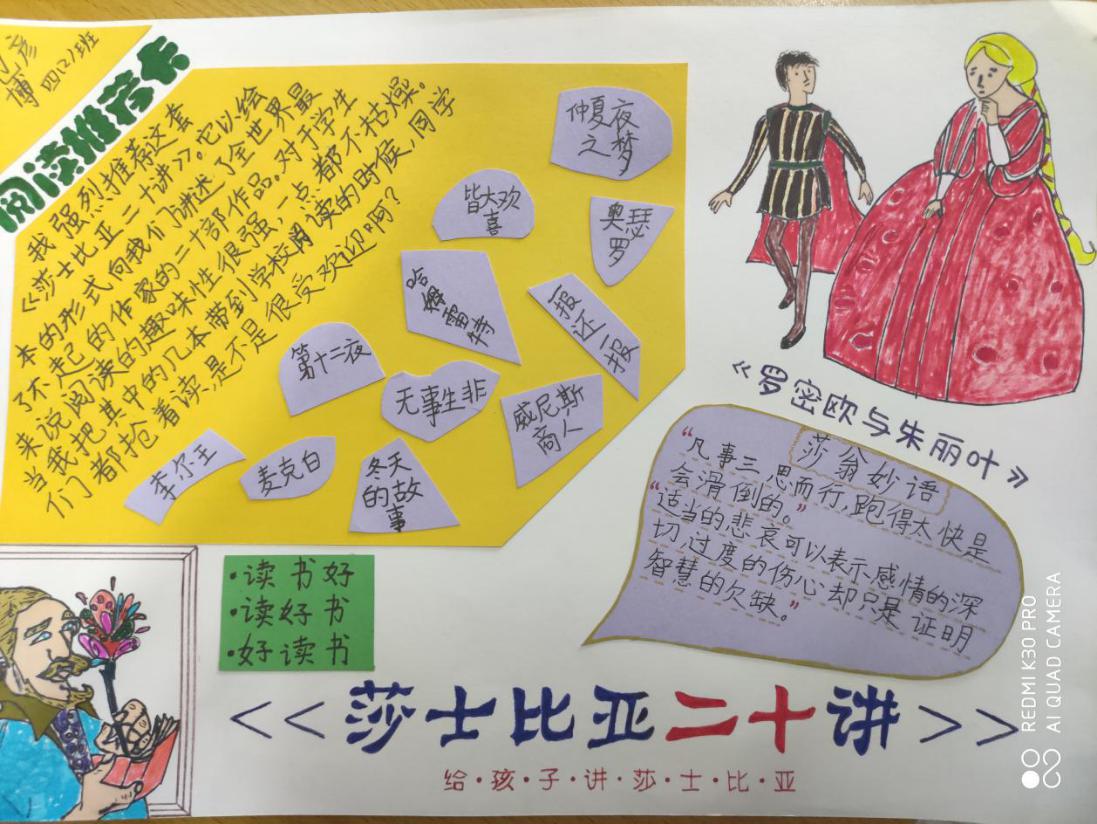 彦
博 四(2)班
阅读推荐卡
我强烈推荐这套
《莎士比亚二十讲》。它以绘
本的形式向我们讲述了全世界最
了不起的作家的二十部作品。对于学生
来说阅读的趣味性很强,一点都不枯燥。
当我把其中的几本带到学校阅读的时候,同学
们都抢着读,是不是很受欢迎啊?
仲夏夜
之梦
皆大欢
喜
奥瑟
罗
哈姆雷特
报还一报
第十二夜
无事生非
威尼斯
商人
李尔王
麦克白
冬天
的故
事
《罗密欧与朱丽叶》
莎翁妙语
“凡事三思而行,跑得太快是
会滑倒的。”
“适当的悲哀可以表示感情的深
切,过度的伤心却只是证明
智慧的欠缺。”
·读书好
·读好书
·好读书
<<莎士比亚二十讲>>
给·孩·子·讲·莎·士·比·亚
REDMI K30 PRO
AI QUAD CAMERA